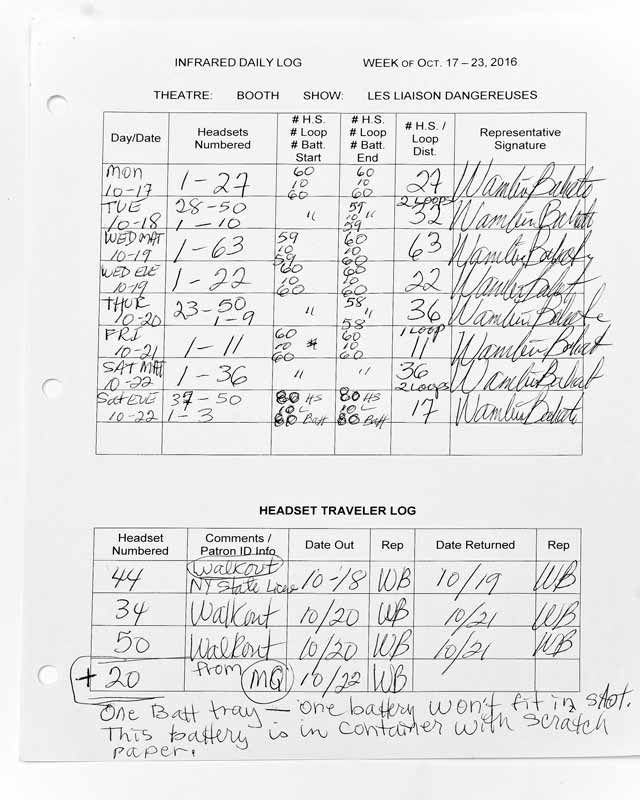 INFRARED DAILY LOG WEEK OF OCT. 17 – 23, 2016
THEATRE: BOOTH SHOW: LES LIAISON DANGEREUSES
Day/Date Headsets Numbered # H.S. # Loop # Batt. Start # H.S. # Loop # Batt. End # H.S. / Loop Dist. Representative Signature
MON 10-17 1-27 60 10 60 60 10 60 27 2 Loops
TUE 10-18 28-50 1-10 " 59 10 " 59 32
WED MAT 10-19 1-63 59 10 59 60 10 60 63
WED EVE 10-19 1-22 60 10 60 60 10 60 22
THUR 10-20 23-50 1-9 " 58 " 58 36 1 Loop
FRI 10-21 1-11 60 10 60 60 10 60 11
SAT MAT 10-22 1-36 " " 36 2 Loops
Sat EVE 10-22 37-50 1-3 80 HS 10 L Batt 80 HS 10 L 80 Batt 17
HEADSET TRAVELER LOG
Headset Numbered Comments / Patron ID Info Date Out Rep Date Returned Rep
44 Walkout NY State Lice 10-18 WB 10/19 WB
34 Walkout 10/20 WB 10/21 WB
50 Walkout 10/20 WB 10/21 WB
+20 from MQ 10/22 WB
One Batt tray — one battery won't fit in slot.
This battery is in container with scratch
paper.